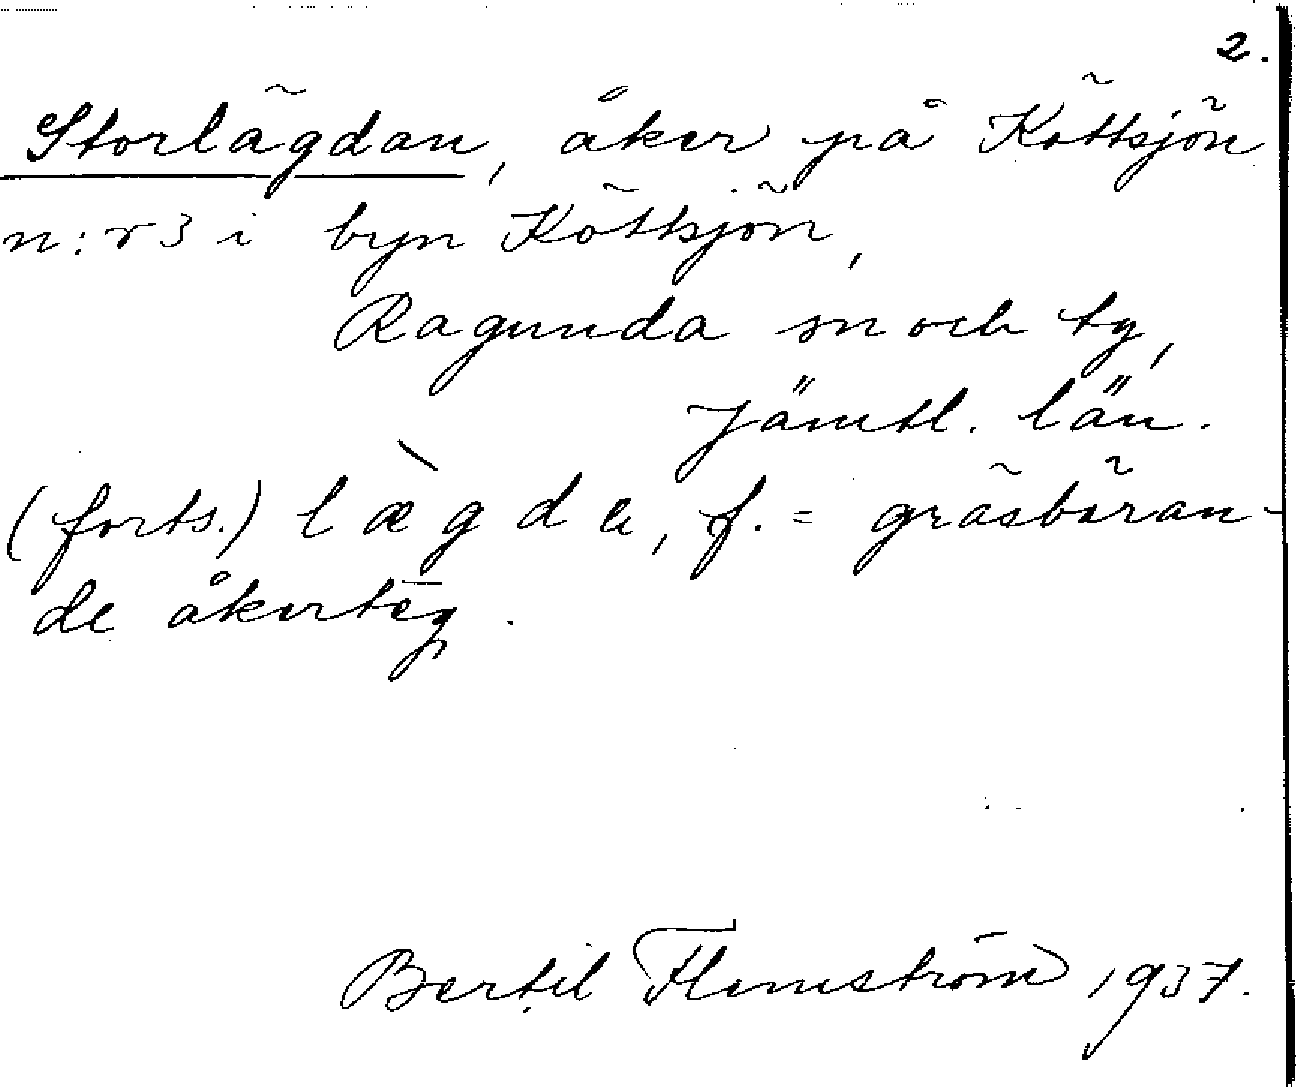 2.
Storlägdan, åker på Köttsjön
n:r 3 i byn Köttsjön,
Ragunda sn och tg,
Jämtl. län.
(forts.) læ̀gda, f. = gräsbäran-
de åkerteg.
Bertil Flemström 1937.